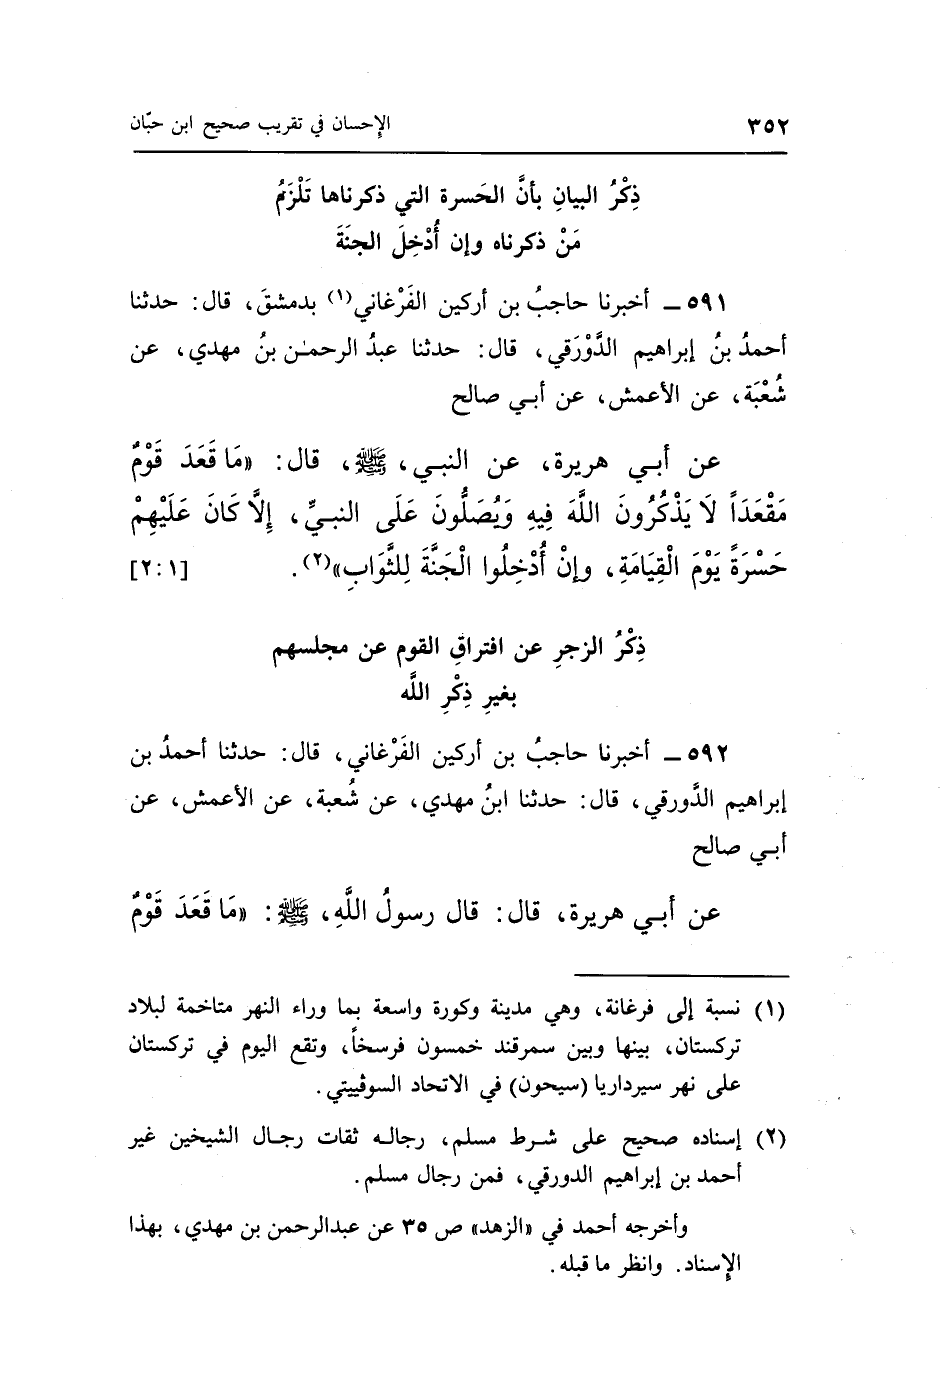 ٣٥٢ الإحسان في تقريب صحيح ابن حبّان
ذِكْرُ البيانِ بأنَّ الحَسرة التي ذكرناها تَلْزَمُ
مَنْ ذكرناه وإن أُدْخِلَ الجنَةَ
٥٩١ـ أخبرنا حاجبُ بن أركين الفَرْغاني(١) بدمشقَ، قال: حدثنا
أحمدُ بنُ إبراهيم الدَّوْرَقي، قال: حدثنا عبدُ الرحمـٰن بنُ مهدي، عن
شُعْبَة، عن الأعمش، عن أبـي صالح
عن أبـي هريرة، عن النبـي، ﷺ، قال: «مَا قَعَدَ قَوْمٌ
مَقْعَدَاً لَا يَذْكُرُونَ اللَّهَ فِيهِ وَيُصَلُّونَ عَلَى النبـيِّ، إِلَّا كَانَ عَلَيْهِمْ
حَسْرَةً يَوْمَ الْقِيَامَةِ، وإنْ أُدْخِلُوا الْجَنَّةَ لِلثَّوَابِ»(٢). [٢:١]
ذِكْرُ الزجرِ عن افتراقِ القوم عن مجلسهم
بغيرِ ذِكْرِ اللَّه
٥٩٢ـ أخبرنا حاجبُ بن أركين الفَرْغاني، قال: حدثنا أحمدُ بن
إبراهيم الدَّورقي، قال: حدثنا ابنُ مهدي، عن شُعبة، عن الأعمش، عن
أبـي صالح
عن أبـي هريرة، قال: قال رسولُ اللَّهِ، ﷺ: «مَا قَعَدَ قَوْمٌ
(١) نسبة إلى فرغانة، وهي مدينة وكورة واسعة بما وراء النهر متاخمة لبلاد
تركستان، بينها وبين سمرقند خمسون فرسخاً، وتقع اليوم في تركستان
على نهر سيرداريا (سيحون) في الاتحاد السوڤييتي.
(٢) إسناده صحيح على شرط مسلم، رجاله ثقات رجال الشيخين غير
أحمد بن إبراهيم الدورقي، فمن رجال مسلم.
وأخرجه أحمد في «الزهد» ص ٣٥ عن عبدالرحمن بن مهدي، بهذا
الإسناد. وانظر ما قبله.